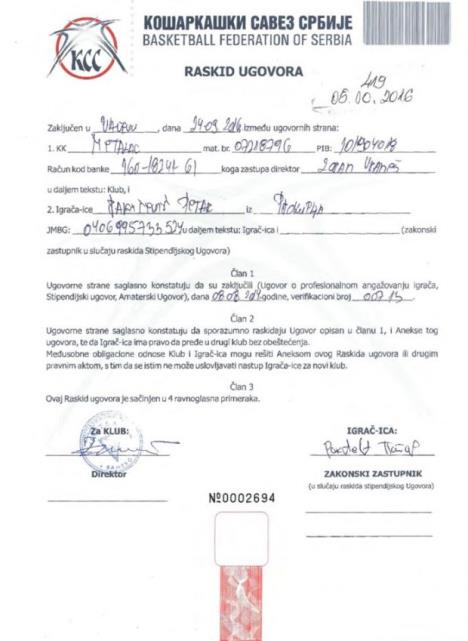 КОШАРКАШКИ САВЕЗ СРБИЈЕ
BASKETBALL FEDERATION OF SERBIA
КСС
RASKID UGOVORA
419
Zaključen u VALJEVU, dana 24.09.2016 između ugovornih strana:
1. KK METALAC mat. br. 07218796 PIB: 101904018
Račun kod banke koga zastupa direktor
u daljem tekstu: Klub, i
2. Igrača-ice iz
JMBG: u daljem tekstu: Igrač-ica i (zakonski
zastupnik u slučaju raskida Stipendijskog Ugovora)
Član 1
Ugovorne strane saglasno konstatuju da su zaključili (Ugovor o profesionalnom angažovanju igrača,
Stipendijski ugovor, Amaterski Ugovor), dana godine, verifikacioni broj
Član 2
Ugovorne strane saglasno konstatuju da sporazumno raskidaju Ugovor opisan u članu 1, i Anekse tog
ugovora, te da Igrač-ica ima pravo da pređe u drugi klub bez obeštećenja.
Međusobne obligacione odnose Klub i Igrač-ica mogu rešiti Aneksom ovog Raskida ugovora ili drugim
pravnim aktom, s tim da se istim ne može uslovljavati nastup Igrača-ice za novi klub.
Član 3
Ovaj Raskid ugovora je sačinjen u 4 ravnoglasna primeraka.
Za KLUB:
IGRAČ-ICA:
Direktor
ZAKONSKI ZASTUPNIK
(u slučaju raskida stipendijskog Ugovora)
№0002694